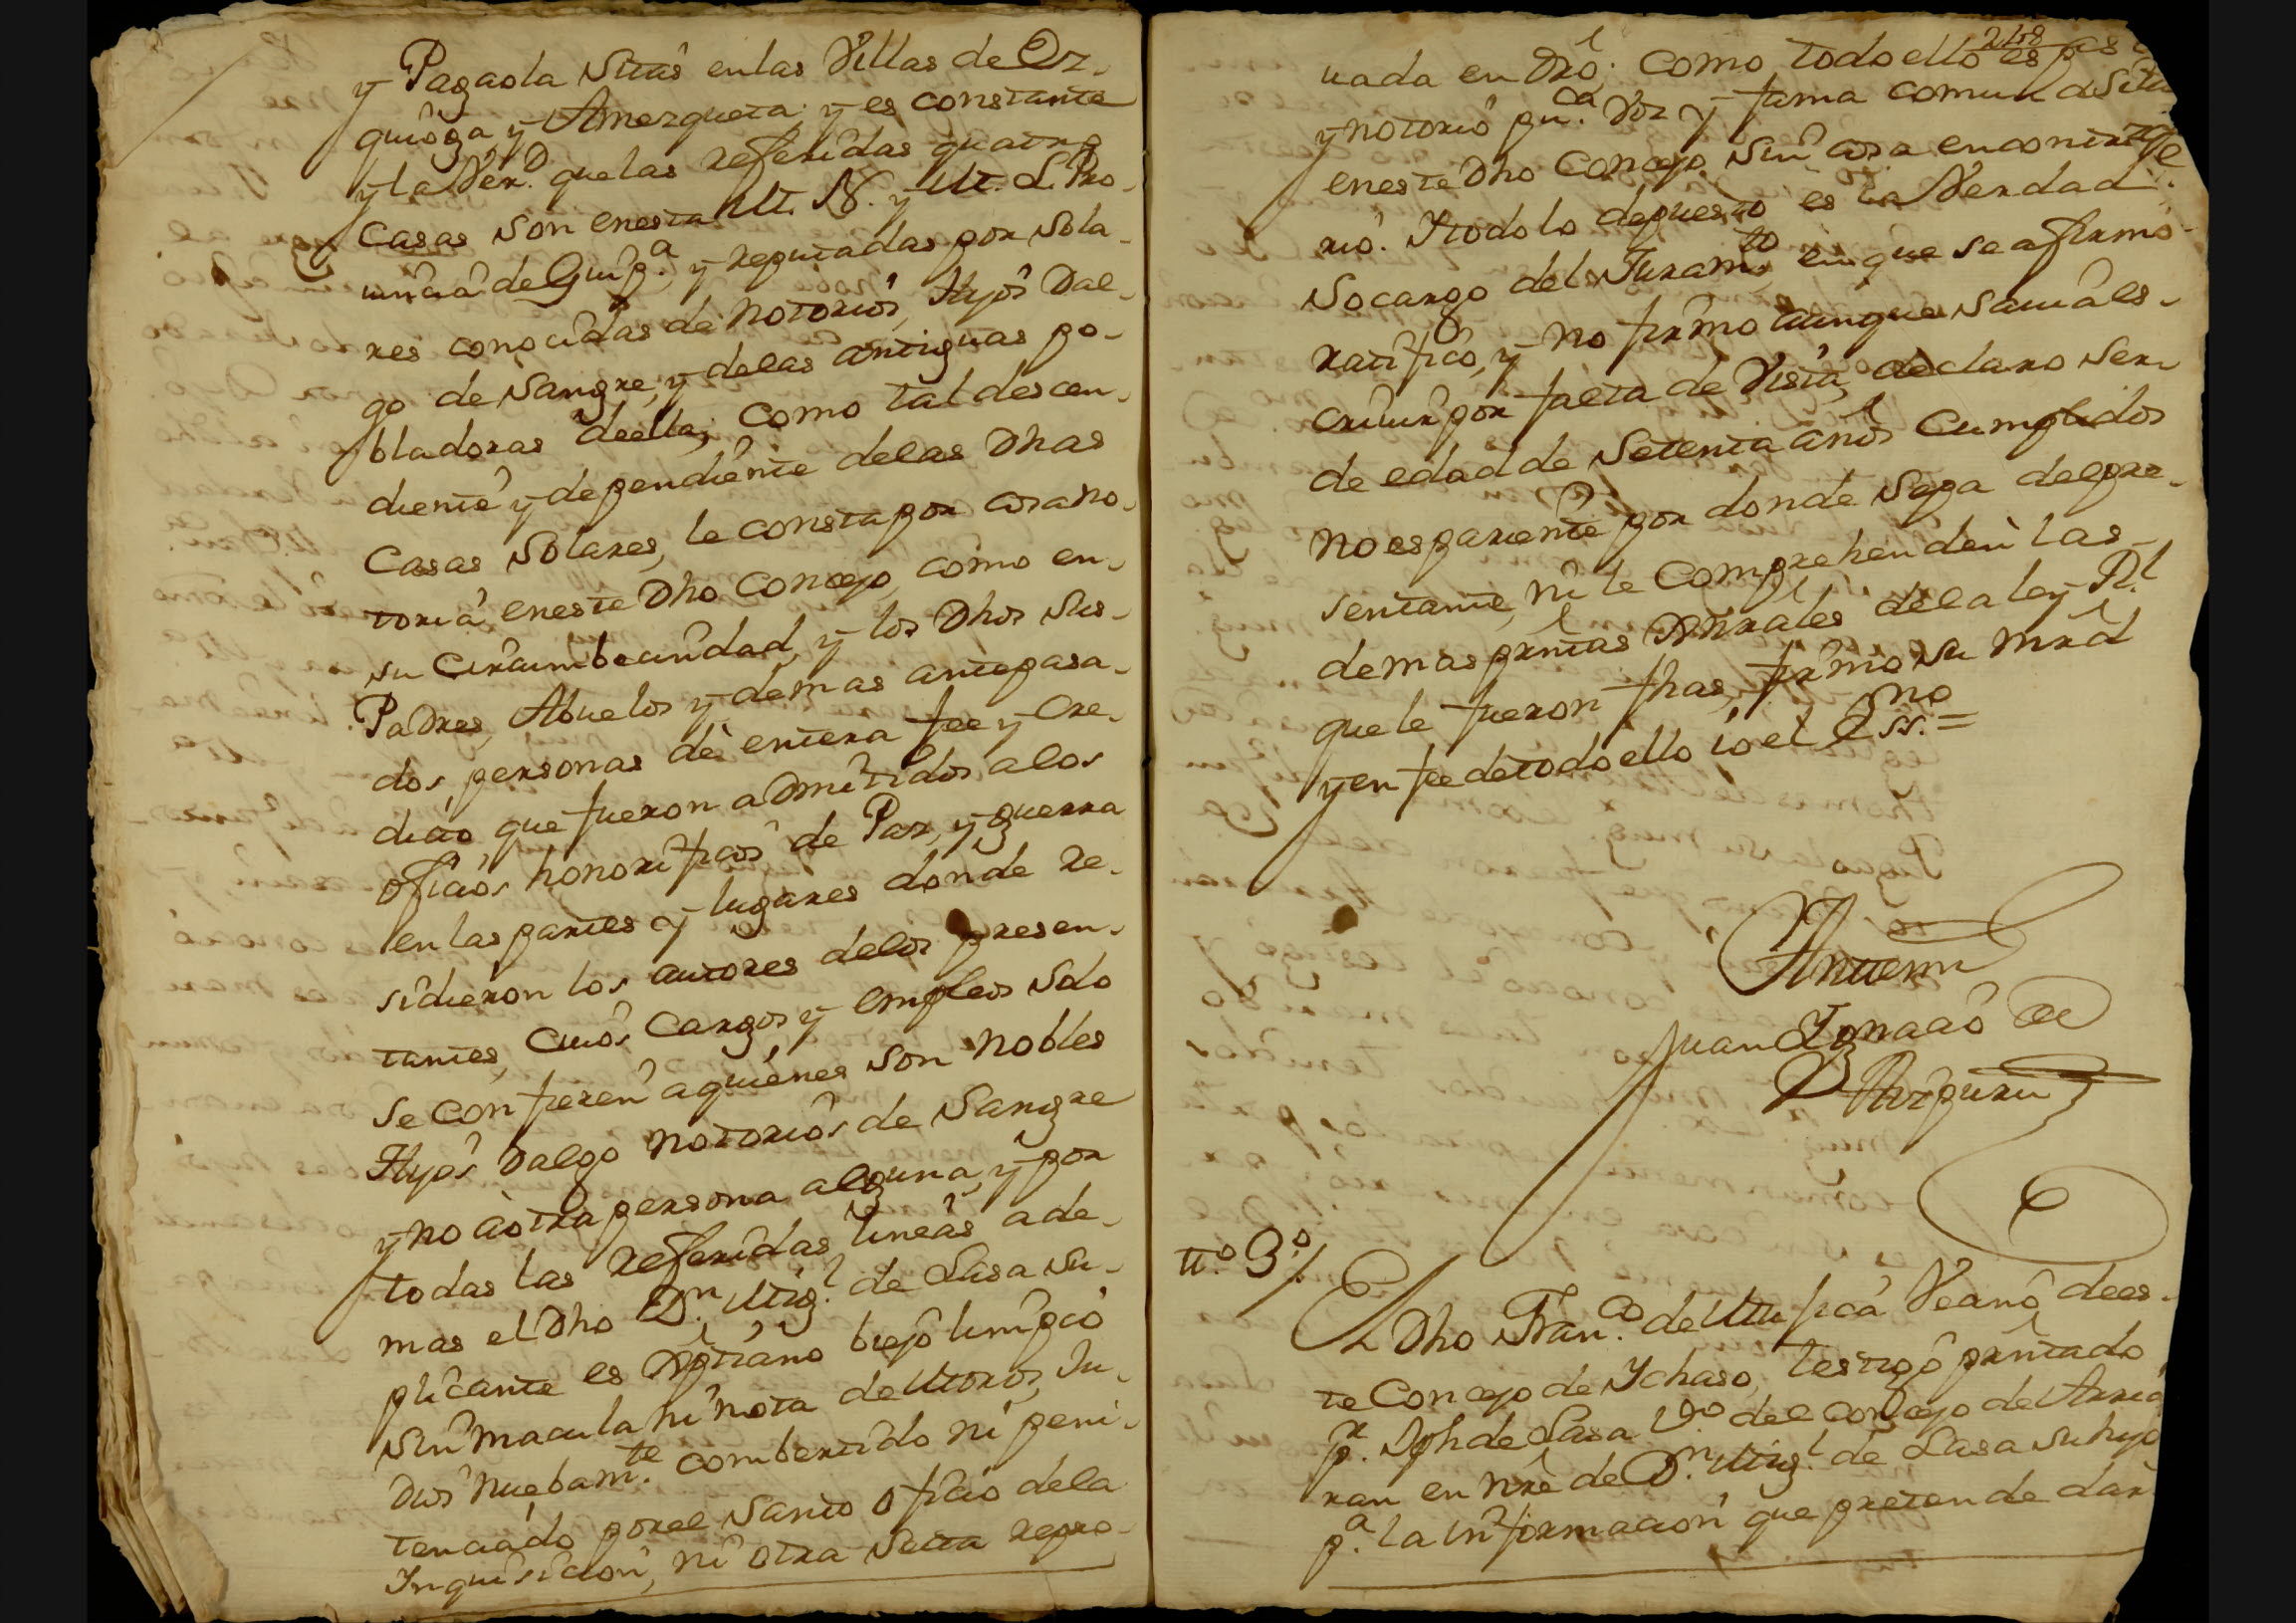 y Pagaola Sitas en las Villas de Or-
quioga y Amezqueta; y es constante
y la Ver.d que las referidas quatro
Casas son en esta M. N. y M. L. Pro-
uincia de Guip.a y reputadas por Sola-
res conocidas de notorios, Hijos Dal-
go de Sangre, y de las antiguas po-
bladoras de ella; como tal descen-
diente y dependiente de las Dhas
Casas Solares, le consta por cosa no-
toria en este Dho Concejo, como en
su Circumbecindad, y los Dhos Sus
Padres, Abuelos y demas antepasa-
dos, personas de entera fee y Cre-
dito que fueron admitidos a los
oficios honorificos de Paz, y guerra
en las partes y lugares donde re-
sidieron los autores de los presen-
tantes, Cuios Cargos y empleos solo
se confieren a quienes son nobles
Hijos Dalgo notorios de Sangre
y no a otra persona alguna, y por
todas las referidas lineas ade-
mas el Dho D.n Mig.l de Lasa Su-
plicante es Xptiano biejo limpio
sin macula ni nota de Moros, Ju-
dios nuebam.te combertido ni peni-
tenciado por el Santo Oficio de la
Inquisicion, ni otra Secta repro-
uada en Dro. Como todo ello es
y notorio pu.ca Voz y fama comun
en este Dho Concejo Sin cosa en contra
rio. I todo lo depuesto es la Verdad
Socargo del Juram.to en que se afirmo
ratifico, y no firmo aunque Saui a es-
criuir por falta de Vista, declaro Ser
de edad de Setenta años Cumplidos
no es pariente por donde Sepa del pre-
sentante, ni le Comprehenden las
demas prntas Gnrales de la ley R.l
que le fueron fhas, firmo Su mrd
y en fee de todo ello io el Ess.no =
Juan Ignacio de
n.o 3.o
El Dho Fran.co de Mufica Vecino de es-
te Concejo de Ychaso, testigo prntado
p.r Jph de Lasa V.o del concejo de Arria
ran en nre de D.n Mig.l de Lasa Su hijo
p.a la informacion que pretende dar